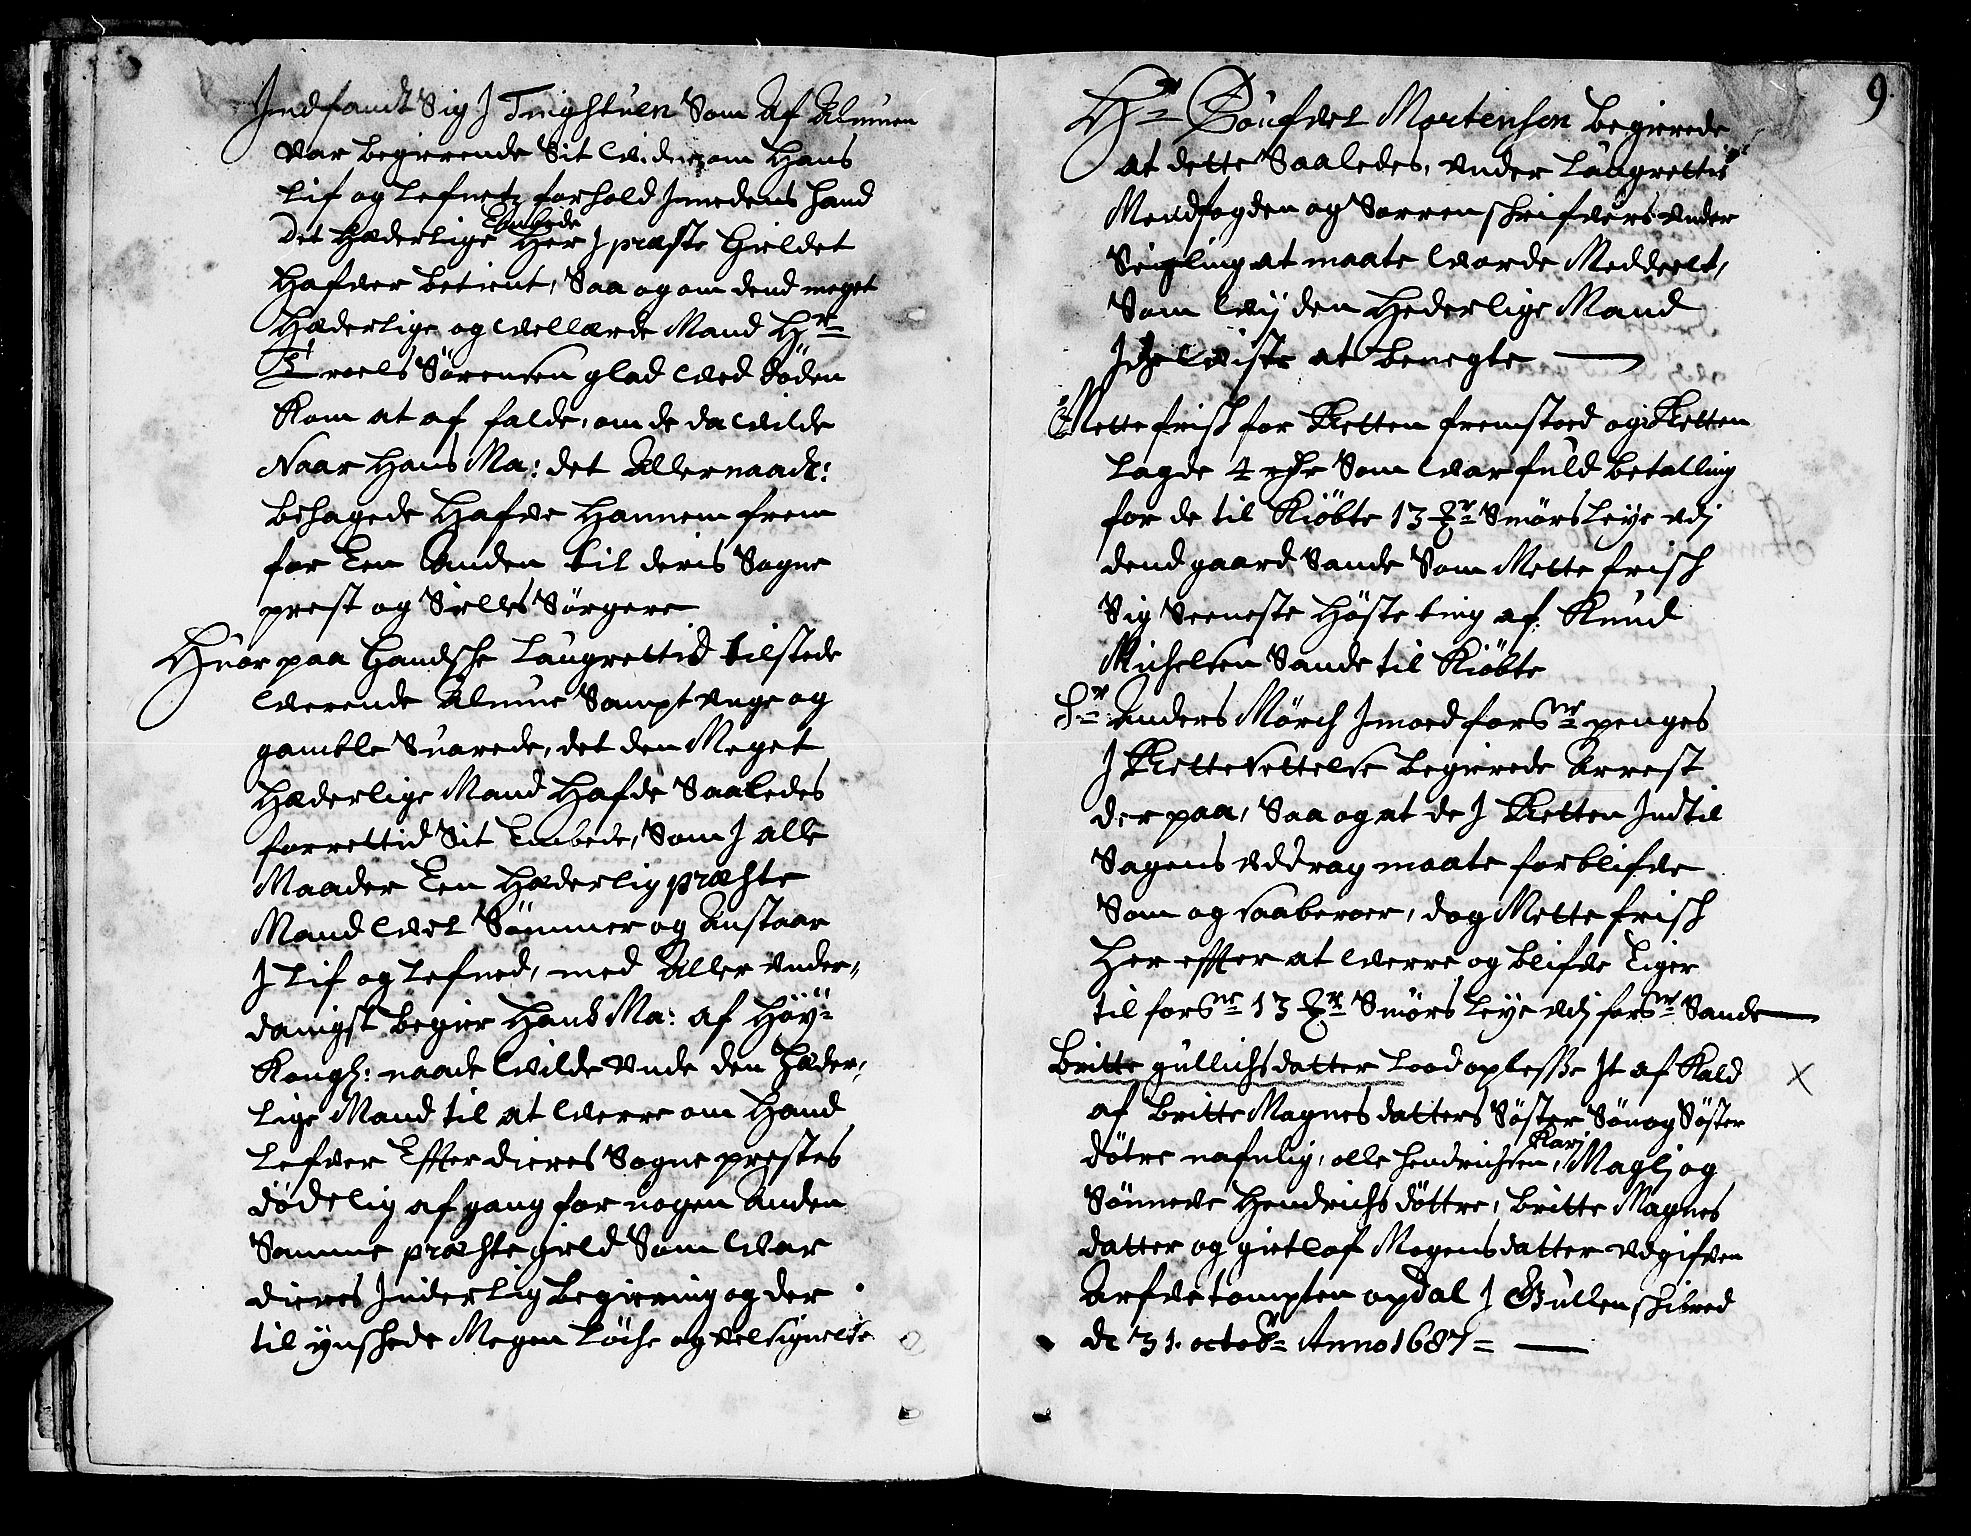 Indfandt Sig J Tingstuen Som Af Almuen
var begierende Sit Widnez om Hans
Lif og Lefnetz forhold Jmedens hand
Det Hæderlige Embede Her J præste Gieldet
Hafver betient, Saa og om dend meget
Hæderlige og Wellærde Mand Hr
Troels Sörensen glad Wed döden
Kom at af falde, om de da Wilde
Naar Hans Ma: det Allernaadl:
behagede Hafve Hannem frem
for Een Anden til deris Sogne
prest og Sielles Sörgere
Huor paa Gandsche Laugrettid tilstede
Werende Almue Sampt Unge og
gamble Suarede, det den Meget
Hæderlige Mand Hafde Saaledes
forrettid Sit Embede, Som J alle
Maader Een Hæderlig præste
Mand Vel Sömmer og Anstaar
J Lif og Lefned, med Aller under,
danigst begier Hans Ma: af Höy-
Kongl: naade Wilde Unde den Hæder,
lige Mand til at Werre om Hand
Lefver Effter dieres Sogne prestes
dödelig af gang for nogen Anden
Samme præste gield Som War
dieres Jnderlig begiering og der
til ynschede Megen Löche og velsignelse
9.
Hr Mortensen begierede
at dette Saaledes, under Laugrettis
Mend fogden og Sorrenschrifvers under
Seigling at maate Worde Meddeelt,
Som Wij den Hederlige Mand
Jche Wiste at benegte
Mette frisk for Retten fremstoed og i Retten
Lagde 4 rdr Som War fuld betalling
for de til Kiöbte 13 mr Smörs Leye udj
dend gaard Sande Som Mette frisch
Sig Seeneste Höste ting af Knud
Michelsen Sande til Kiöbte
Sr Anders Mörch Jmoed forsne penges
J Rettesettelse begierede Arrest
der paa, Saa og at de J Retten Jndtil
Sagens uddrag maate forblifve
Som og saa beroer, dog Mette frisch
Her effter at Werre og blifve Eiger
til forsne 13 mr Smörs Leye udj forsne Sande
Britte gullichsdatter Lood oplesse It af Kald
af Britte Magnesdatters Söster Sön og Söster
dötre nafnlig, olle Hendrichsen, Karj Maglj og
Sönneve Hendrichs döttre, Britte Magnes
datter og giertlof Mogensdatter udgifven
Arfvetompten opdal J Gullen schibred
de 31. octobr Anno 1687